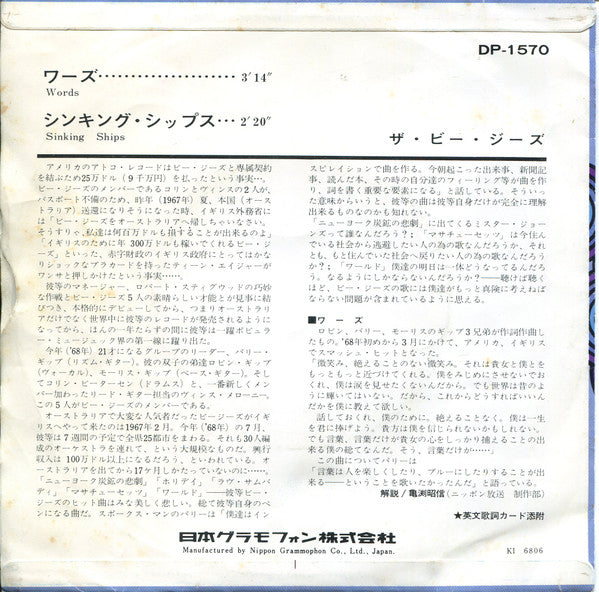 DP-1570
ワーズ…………………3′14″
Words
シンキング・シップス…2′20″
Sinking Ships
ザ・ビー・ジーズ
アメリカのアトコ・レコードはビー・ジーズと専属契約
を結ぶため25万ドル(9千万円)を払ったという事実…。
ビー・ジーズのメンバーであるコリンとヴィンスの2人が、
パスポート不備のため、昨年(1967年)夏、本国(オース
トラリア)送還になりそうになった時、イギリス外務省に
は「ビー・ジーズをオーストラリアへ帰しちゃいなさい。
そうすりゃ、私達は何百万ドルも損することが出来るのよ」
「イギリスのために年300万ドルも稼いでくれるビー・ジ
ーズ」といった、赤字財政のイギリス政府にとってはかな
りショックなプラカードを持ったティーン・エイジャーが
ワンサと押しかけたという事実…。
彼等のマネージャー、ロバート・スティグウッドの巧妙
な作戦とビー・ジーズ5人の素晴らしい才能とが見事に結
びつき、本格的にデビューしてから、つまりオーストラリ
アだけでなく世界中に彼等のレコードが発売されるように
なってから、ほんの一年たらずの間に彼等は一躍ポピュラ
ー・ミュージック界の第一線に躍り出た。
今年('68年)21才になるグループのリーダー、バリー・
ギブ(リズム・ギター)、彼の双子の弟達ロビン・ギップ
(ヴォーカル)、モーリス・ギップ(ベース・ギター)、そし
てコリン・ピーターセン(ドラムス)と、一番新しくメン
バー加わったリード・ギター担当のヴィンス・メローニー。
この5人がビー・ジーズのメンバーである。
オーストラリアで大変な人気者だったビージーズがイギ
リスへやって来たのは1967年2月。今年('68年)の7月、
彼等は7週間の予定で全県25都市をまわる。それも30人編
成のオーケストラを連れて、という大規模なものだ。興行
収入は100万ドル以上になるだろう、といわれている。オ
ーストラリアを出てから17ケ月しかたっていないのに……。
「ニューヨーク炭鉱の悲劇」「ホリデイ」「ラヴ・サムバ
ディ」「マサチューセッツ」「ワールド」――彼等ビー・
ジーズのヒット曲はみな美しく悲しい。総て彼等自身のペ
ンになる曲だ。スポークス・マンのバリーは「僕達はイン
スピレイションで曲を作る。今朝起こった出来事、新聞記
事、読んだ本、その時の自分達のフィーリング等が曲を作
り、詞を書く重要な要素になる」と話している。そういっ
た意味からいうと、彼等の曲は彼等自身だけが完全に理解
出来るものなのかも知れない。
「ニューヨーク炭鉱の悲劇」に出てくるミスター・ジョー
ンズって誰なんだろう?;「マサチューセッツ」は今住ん
でいる社会から逃避したい人の為の歌なんだろうか、それ
とも、もと住んでいた社会へ戻りたい人の歌なんだろう
か?;「ワールド」僕達の明日は一体どうなってるんだろ
う。なるようにしかならないんだろうか?――聴けば聴く
ほど、ビー・ジーズの歌には僕達がもっと真険に考えねば
ならない問題が含まれているように思える。
■ワーズ
ロビン、バリー、モーリスのギップ3兄弟が作詞作曲し
たもの。'68年初から3月にかけて、アメリカ、イギリス
でスマッシュ・ヒットとなった。
「微笑み、絶えることのない微笑み。それは貴女と僕とを
もっともっと近づけてくれる。僕をみじめにさせないでお
くれ、僕は涙を見せたくないんだから。でも世界は昔のよ
うに輝いてはいない。だから、これからどうすればいいん
だかを僕に教えて欲しい。
話しておくれ、僕のために、絶えることなく、僕は一生
を君に捧げよう。貴方は僕を信じられないかもしれない。
でも言葉、言葉だけが貴女の心をしっかり捕えることの出
来る僕の総てなんだ。そう、言葉だけが……」
この曲についてバリーは
「言葉は人を楽しくしたり、ブルーにしたりすることが出
来る――ということを歌いたかったんだ」と語っている。
解説/亀渕昭信(ニッポン放送 制作部)
★英文歌詞カード添附
日本グラモフォン株式会社
Manufactured by Nippon Grammophon Co., Ltd., Japan.
KI 6806